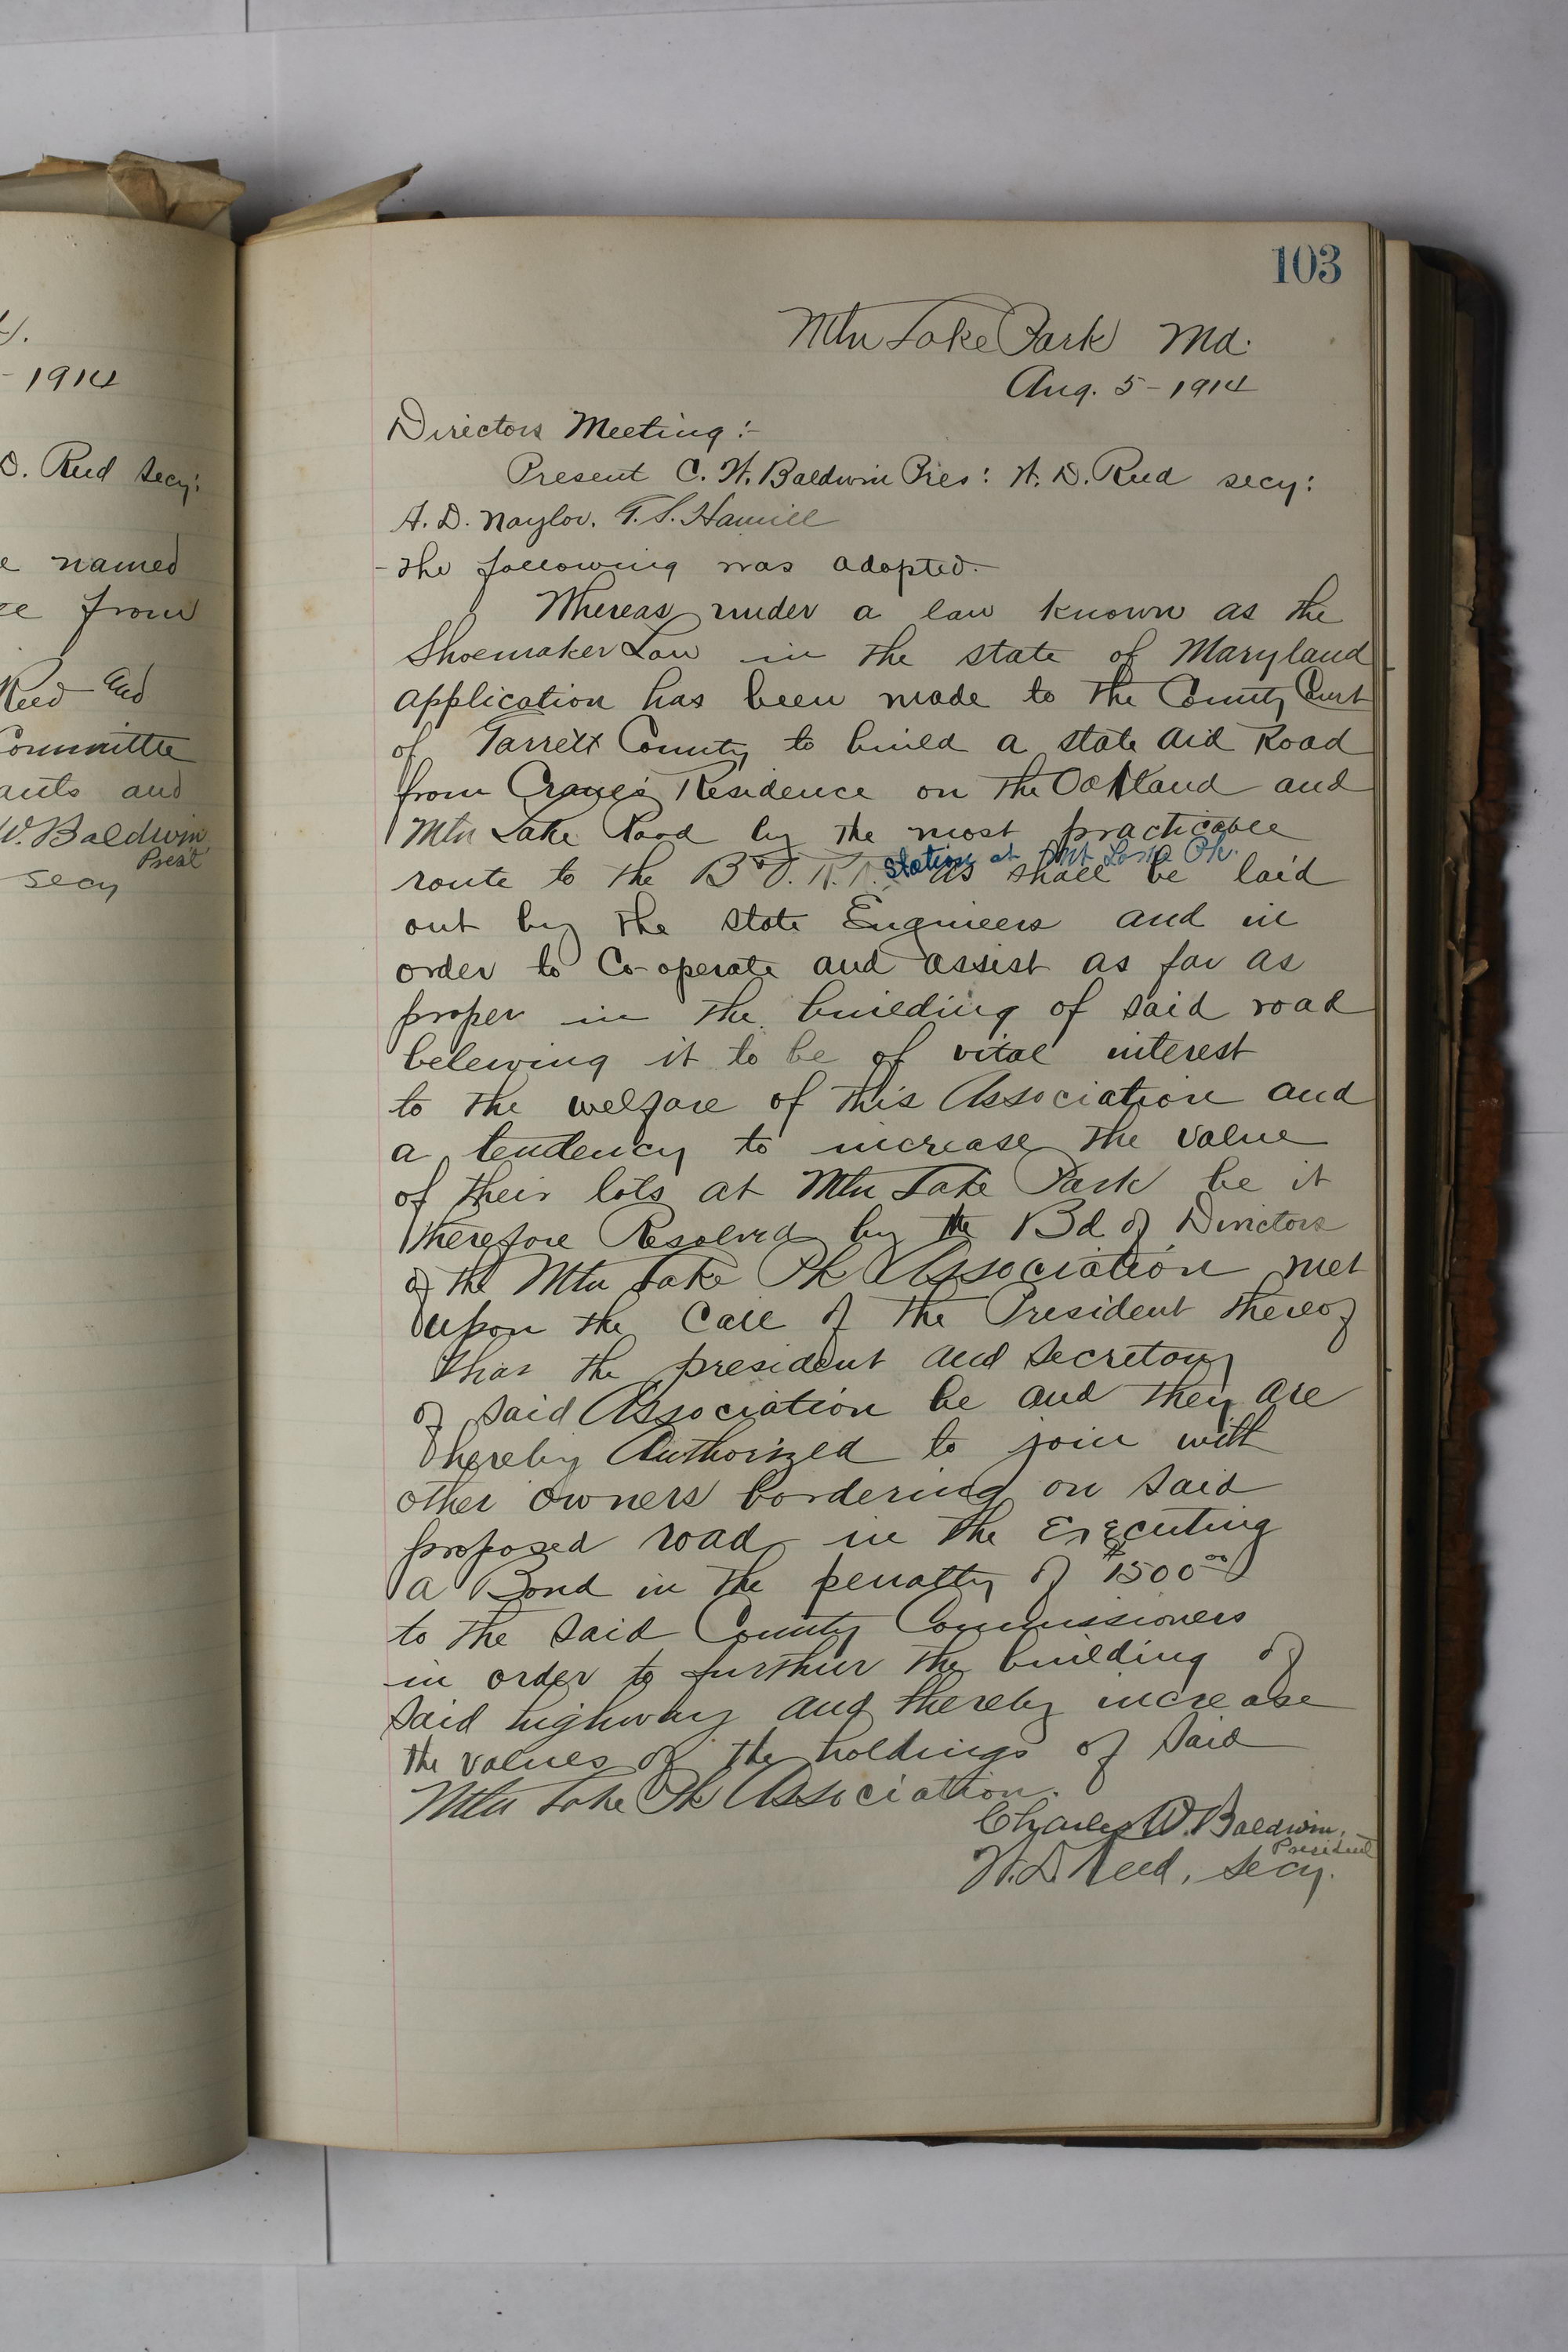 . 1914
D. Reed secy:
e named
ce from
Reed and
Committee
ants and
W. Baldwin
Prest
secy
103
Mtn Lake Park Md.
Aug. 5 - 1914
Directors Meeting :-
Present C. W. Baldwin Pres: W. D. Reed secy:
A. D. Naylor. G. S. Hamill
- the following was adopted -
Whereas under a law known as the
Shoemaker Law in the state of Maryland
application has been made to the County Court
of Garrett County to build a state aid Road
from Residence on the Oakland and
Mtn Lake Road by the most practicable
station at Mt Lake Pk.
route to the B & O. R. R. as shall be laid
out by the state Engineers and in
order to Co-operate and assist as far as
proper in the building of said road
beleving it to be of vital interest
to the welfare of this Association and
a tendency to increase the value
of their lots at Mtn Lake Park be it
therefore Resolved by the Bd of Directors
of the Mtn Lake Pk Association met
upon the Call of the President thereof
that the president and Secretary
of said Association be and they are
hereby Authorized to join with
other owners bordering on said
proposed road in the Executing
a Bond in the penalty of $1500.00
to the said County Commissioners
in order to further the building of
said highway and thereby increase
the values of the holdings of said
Mtn Lake Pk Association.
Charles W. Baldwin,
President
W. D. Reed, Secy.